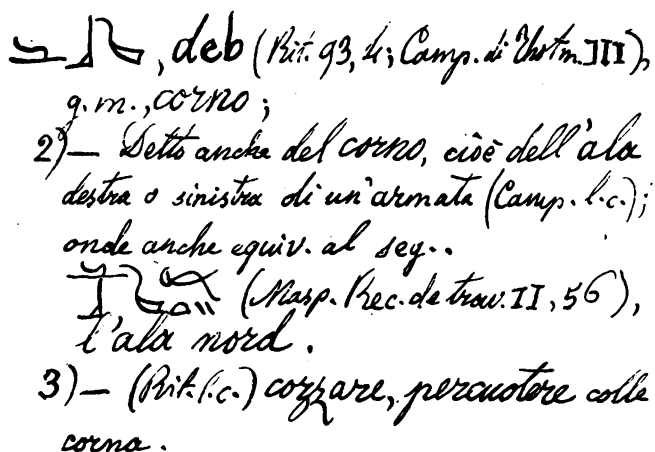 , deb (Rit. 93, 4; Camp. di Thotm. III),
g. m., corno;
2) — Detto anche del corno, cioè dell'ala
destra o sinistra di un'armata (Camp. l. c.);
onde anche equiv. al seg..
(Masp. Rec. de trav. II, 56),
l'ala nord.
3) — (Rit. l. c.) cozzare, percuotere colle
corna.